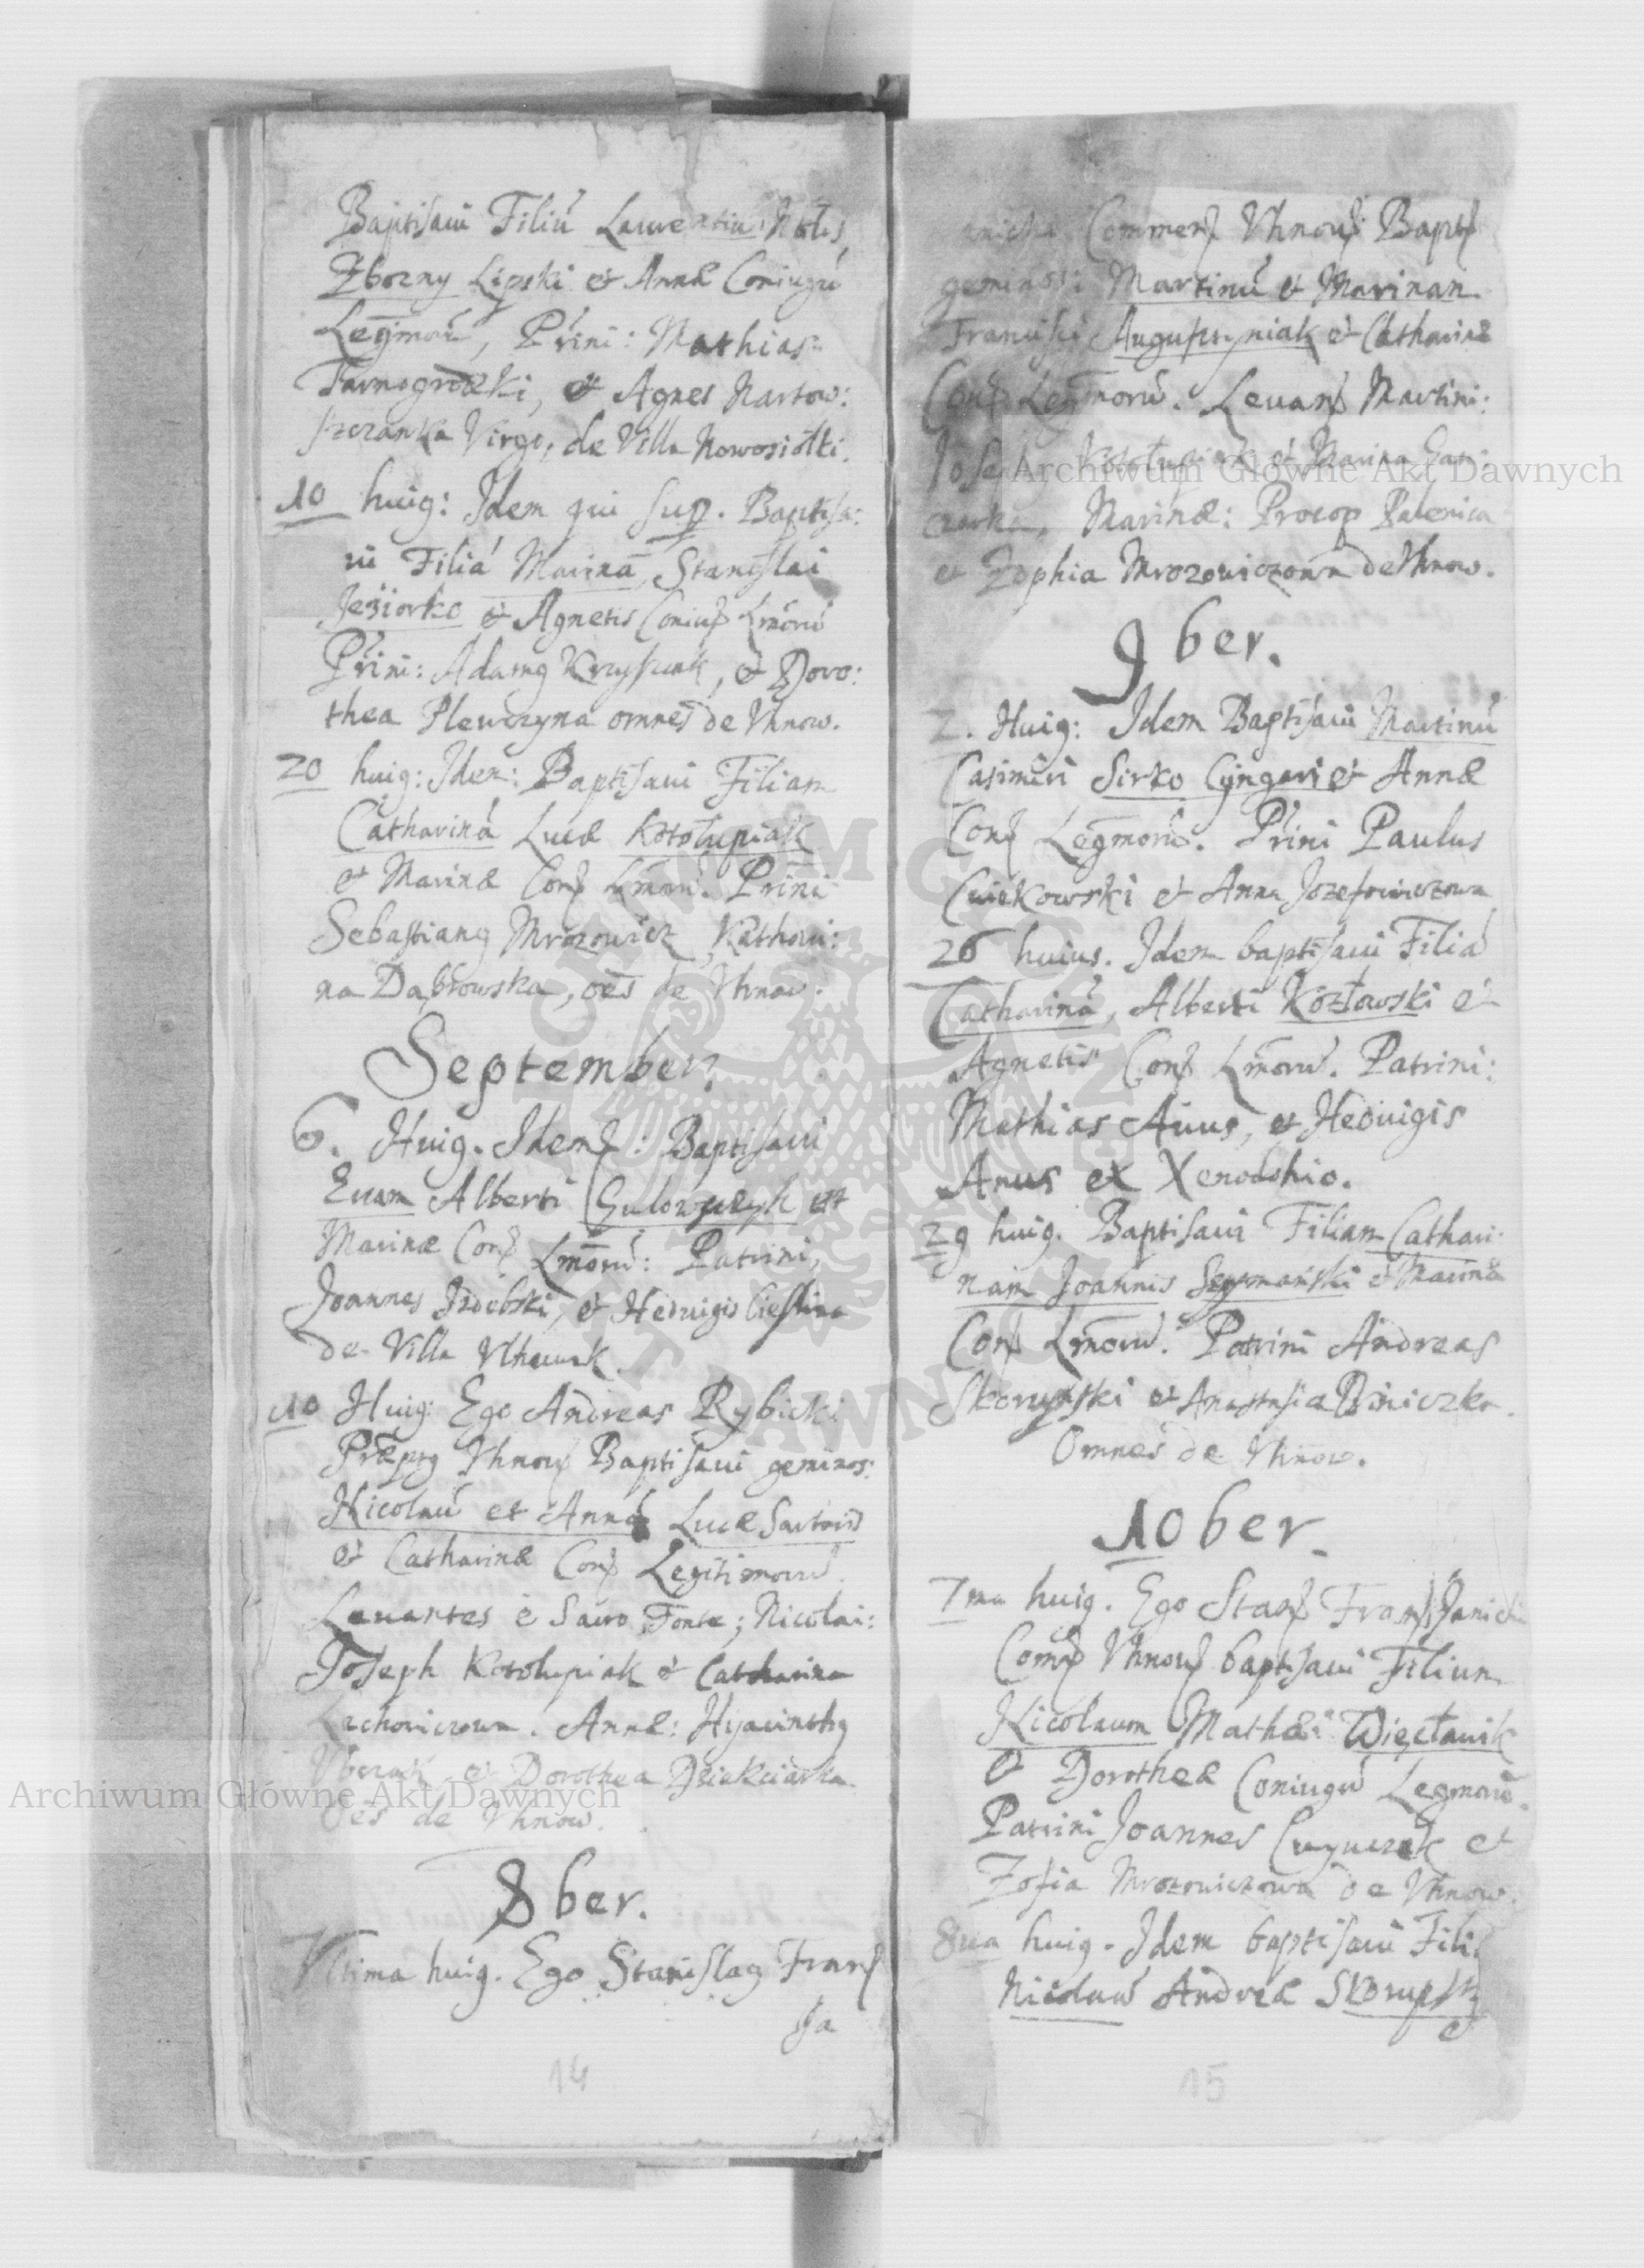 Baptisavi Filiũ Laurentiũ Nobilis
Zbozny Lipski et Annæ Coniugũ
Legmorũ, Prini: Mathias
Tarnogrodzki, et Agnes Nartow:
szczanka Virgo, de Villa Nowosiołki.
10 huig: Idem qui sup. Baptisa:
vi Filiã Marinã, Stanislai
Jeziorko et Agnetis Coniug Lmorũ
Prini: Adamg Krzysztak, et Doro:
thea Plewczyna omnes de Vhnow.
20 huig: Idem: Baptisavi Filiam
Catharinã Lucæ Kotołupiak
et Marinæ Conj Lmorũ. Prini
Sebastiang Mrozowicz, Kathari:
na Dąbrowska, oẽs de Vhnow.
September
6. Huig. Idem: Baptisavi
Evam Alberti et
Marinæ Conj Lmorũ: Patrini,
Joannes Izdebski, et Hedvigis
de Villa Vlhowek.
10 Huig: Ego Andreas Rybicki
Præpg Vhnow Baptisavi geminos:
Nicolaũ et Annã Lucæ Sartoris
et Catharinæ Conj Legitimorũ.
Levantes è Sacro Fonte; Nicolai:
Joseph Kotolupiak et Catharina
Lachowiczowa. Annæ: Hyacinthg
et Dorothea Dziekciarka
oẽs de Vhnow.
8ber.
Vltima huig. Ego Stanislag Franj
Ja
14
nicki Commenj Vhnow Baptj
geminos: Martinũ et Marinam
Francisci Augustyniak et Catharinæ
Conj Legmorũ. Levanj Martini:
Joseph Kotołupiak et Marina
Marinæ: Procop Palenica
et Zophia Mrozowiczowa de Vhnow.
9ber.
2. Huig: Idem Baptisavi Martinũ
Casimiri Sirko Cyngari et Annæ
Conj Legmorũ. Prini Paulus
Cwiekowski et Anna Jozefowiczowa
26 huius. Idem baptisavi Filiã
Catharinã, Alberti Kozłowski et
Agnetis Conj Lmorũ. Patrini:
Mathias Avus, et Hedvigis
Anus ex Xenodohio.
29 huig. Baptisavi Filiam Cathari:
nam Joannis Szymański et Marinæ
Conj Lmorũ. Patrini Andreas
Skorupski et Anastasia
Omnes de Vhnow.
10ber
7ma huig. Ego Stanj Franj Janicki
Comj Vhnow baptisavi Filium
Nicolaum Mathæi Więcławik
et Dorotheæ Coniugũ Legmorũ.
Patrini Joannes et
Zofia Mrozowiczowa de Vhnow.
8va huig. Idem baptisavi Fili
Nicolaũ Andreæ Skorupski
15
Archiwum Główne Akt Dawnych
Archiwum Główne Akt Dawnych